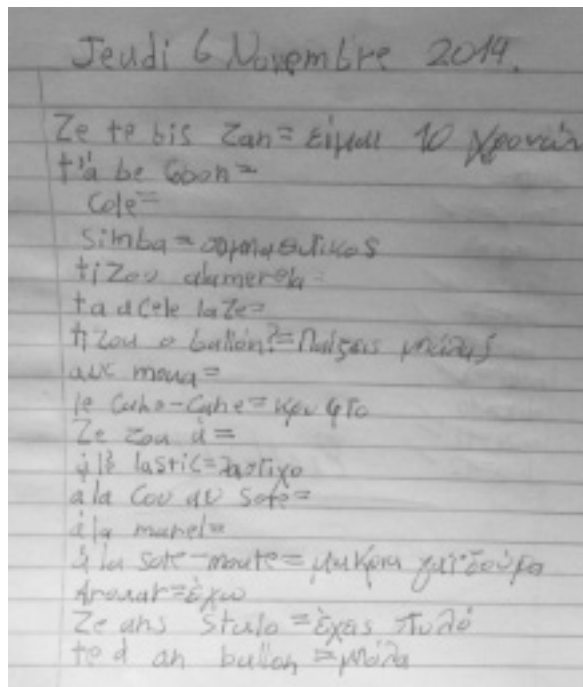 Jeudi 6 Novembre 2014.
Ze te bis zan = είμαι 10 χρονών
t'a be Goon =
Cole =
Simba =
tizou alamerela
ta dcele laze =
ti zou o ballon? = Παίζεις μπάλας
avc moua =
le Cahe-Cahe = κρυφτο
Ze zou à =
à l lastic = λαστιχο
a la Cou au Sote =
à la marel =
à la sote-moute = μακρια γαϊδούρα
Arouar = έχω
Ze ans Stulo = έχεις στυλό
te d an ballon = μπάλα